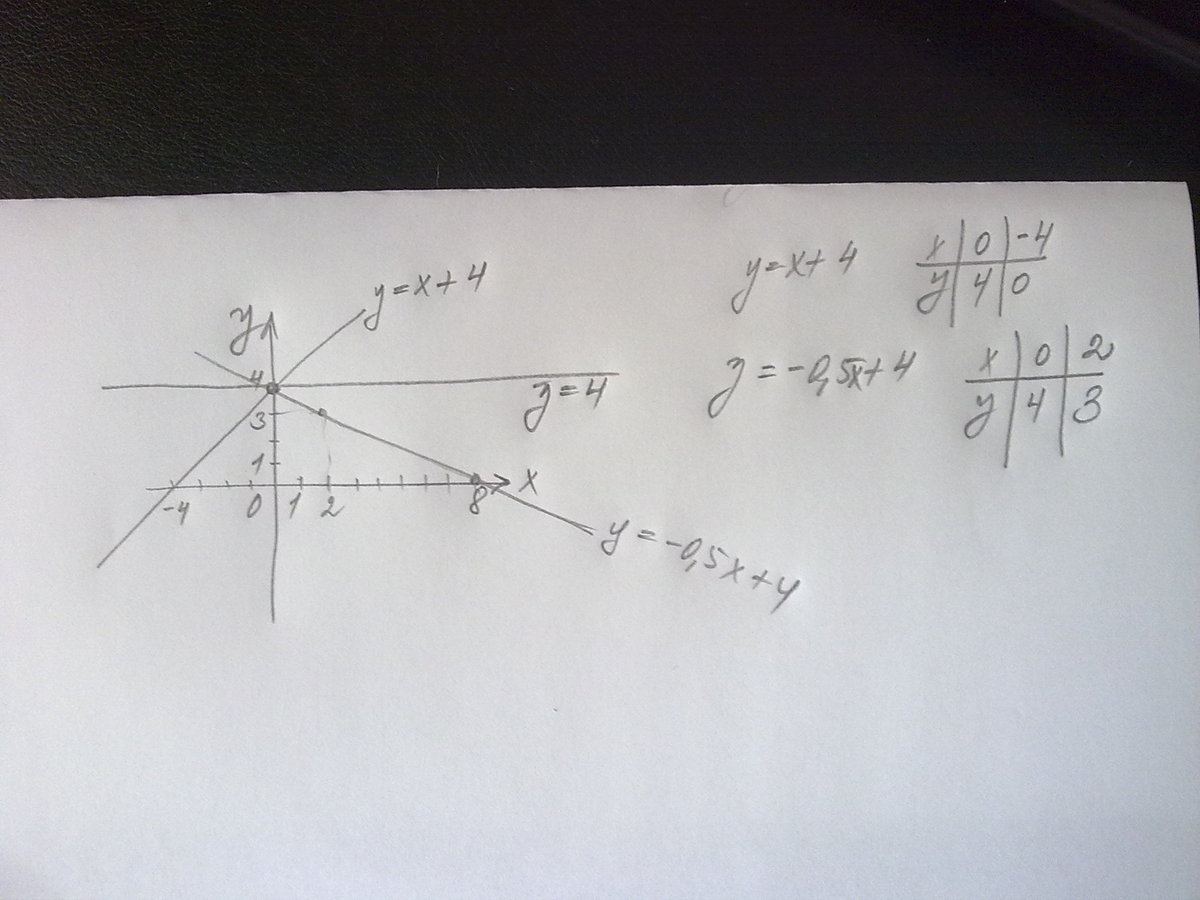 y = x + 4
y
4
y = 4
3
1
-4 0 1 2 8 x
y = -0,5x + 4
y = x + 4
x | 0 | -4
y | 4 | 0
y = -0,5x + 4
x | 0 | 2
y | 4 | 3